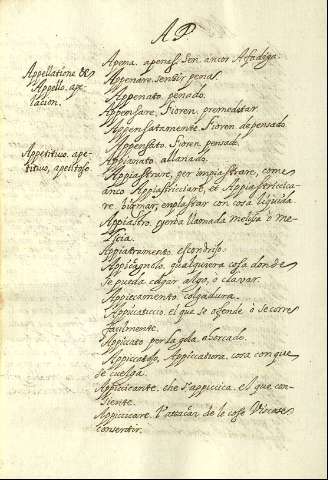 AP
Apena. apenas. Sen. ancor Afadiga.
Appellatione &
Appello. ape-
lacion.
Appenare. sentir penas.
Appenato. penado.
Appensare, Fioren. premeditar
Appensatamente. Fioren. depensado
Appensato. Fioren. pensado
Appetitivo. ape-
titivo, apetitoso.
Appianato. allanado.
Appiastrare, per impiastrare, come
anco Appiastricciare, et Appiastricica-
re. bizmar, emplastar con cosa liquida
Appiastro. yerba llamada melisa o me-
Appiattamento. escondrijo.
Appicagnolo. qualquiera cosa donde
se pueda colgar algo, o clavar.
Appiccamento. colgadura.
Appicaticcio. el que se ofende ò se corre
facilmente.
Appiccato per la gola. ahorcado.
Appiccatoio, Appiccatura. cosa con que
se cuelga.
Appiccicante. che s'appiccica. el que con-
siente.
Appiccicare. l'attaccar de le cose Viscose
consentir.